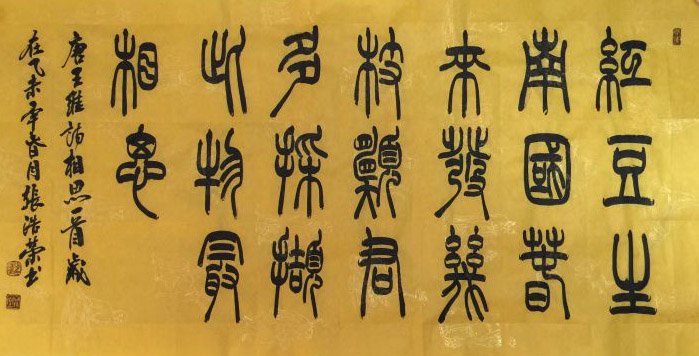 紅豆生
南國春
來發幾
枝願君
多採擷
此物最
相思
唐王維詩相思一首歲
在乙未年春月張浩榮書